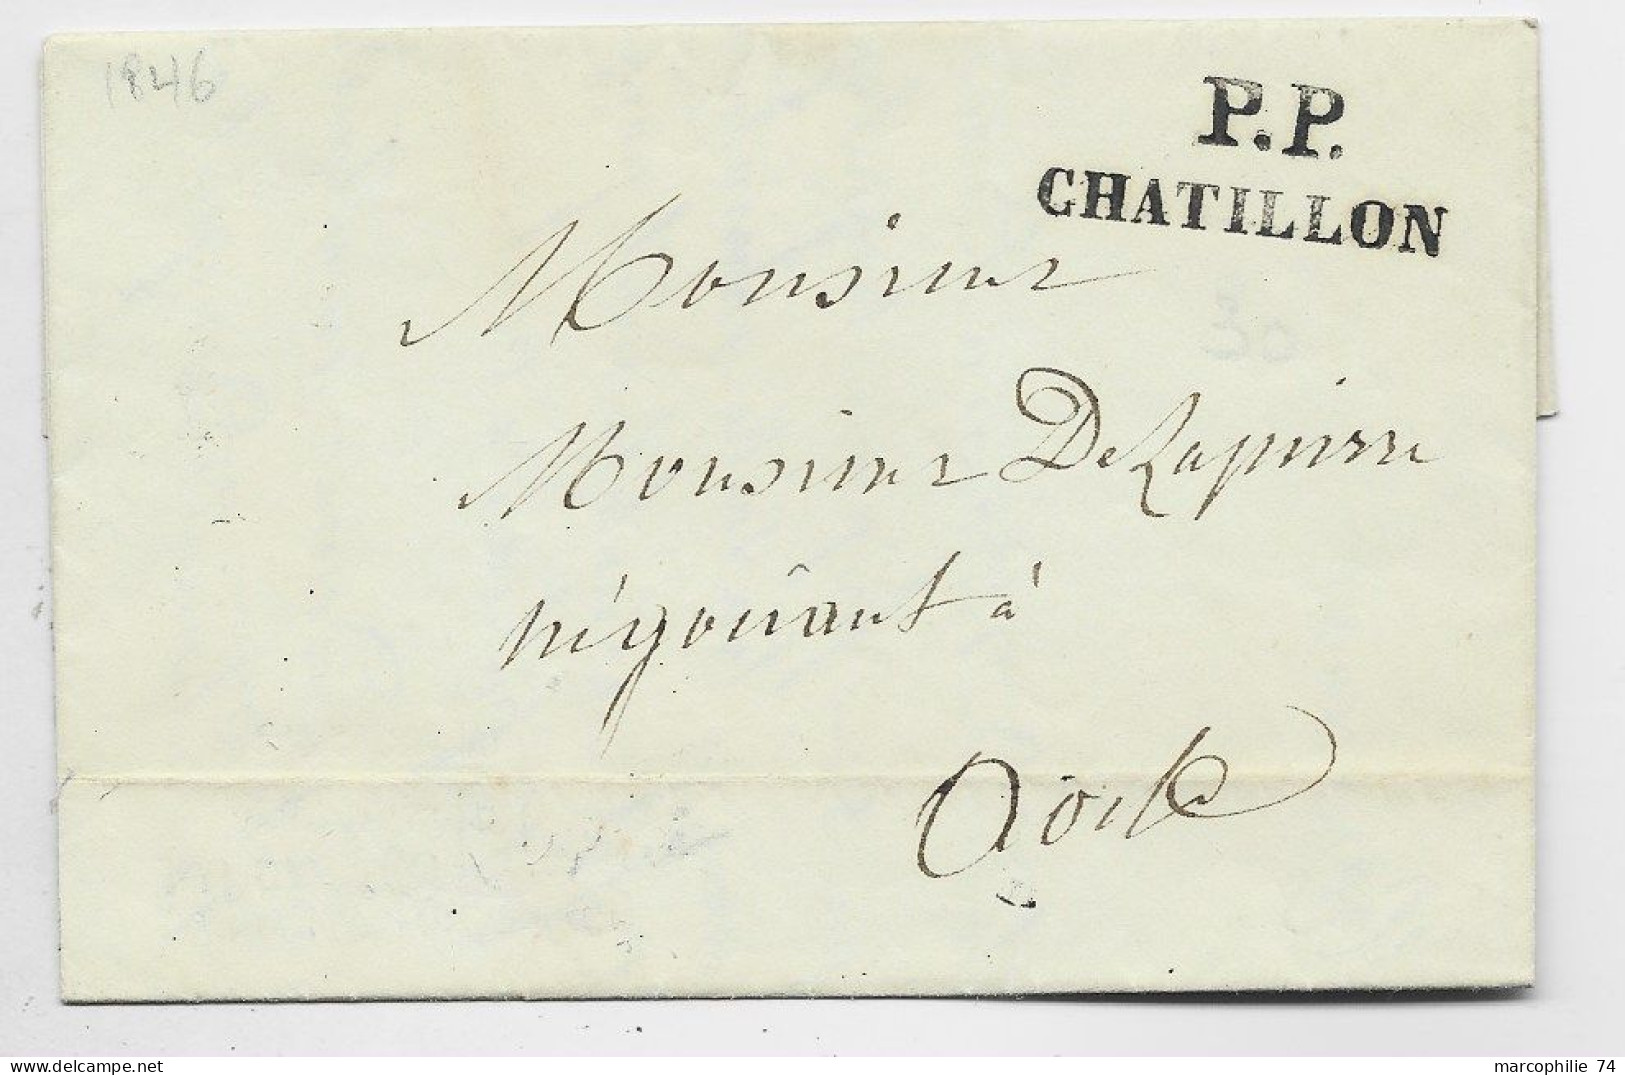 1846
P.P.
CHATILLON
Monsieur
30
Monsieur De Lapierre
négociant à
Aoste
marcophilie 74